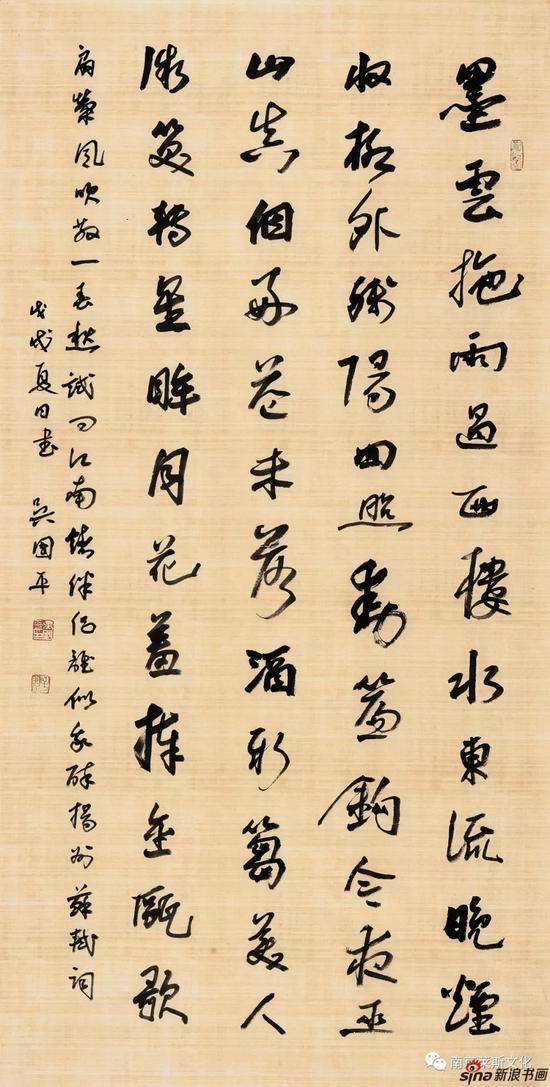 墨雲拖雨過西樓水東流晚煙
收柳外殘陽回照動簾鈎今夜巫
山真個好花未落酒新篘美人
微笑轉星眸月花羞捧金甌歌
扇縈風吹散一春愁試問江南諸伴侶誰似我醉揚州蘇軾詞
戊戌夏日書 吳國平
南京莱斯文化
sina新浪书画